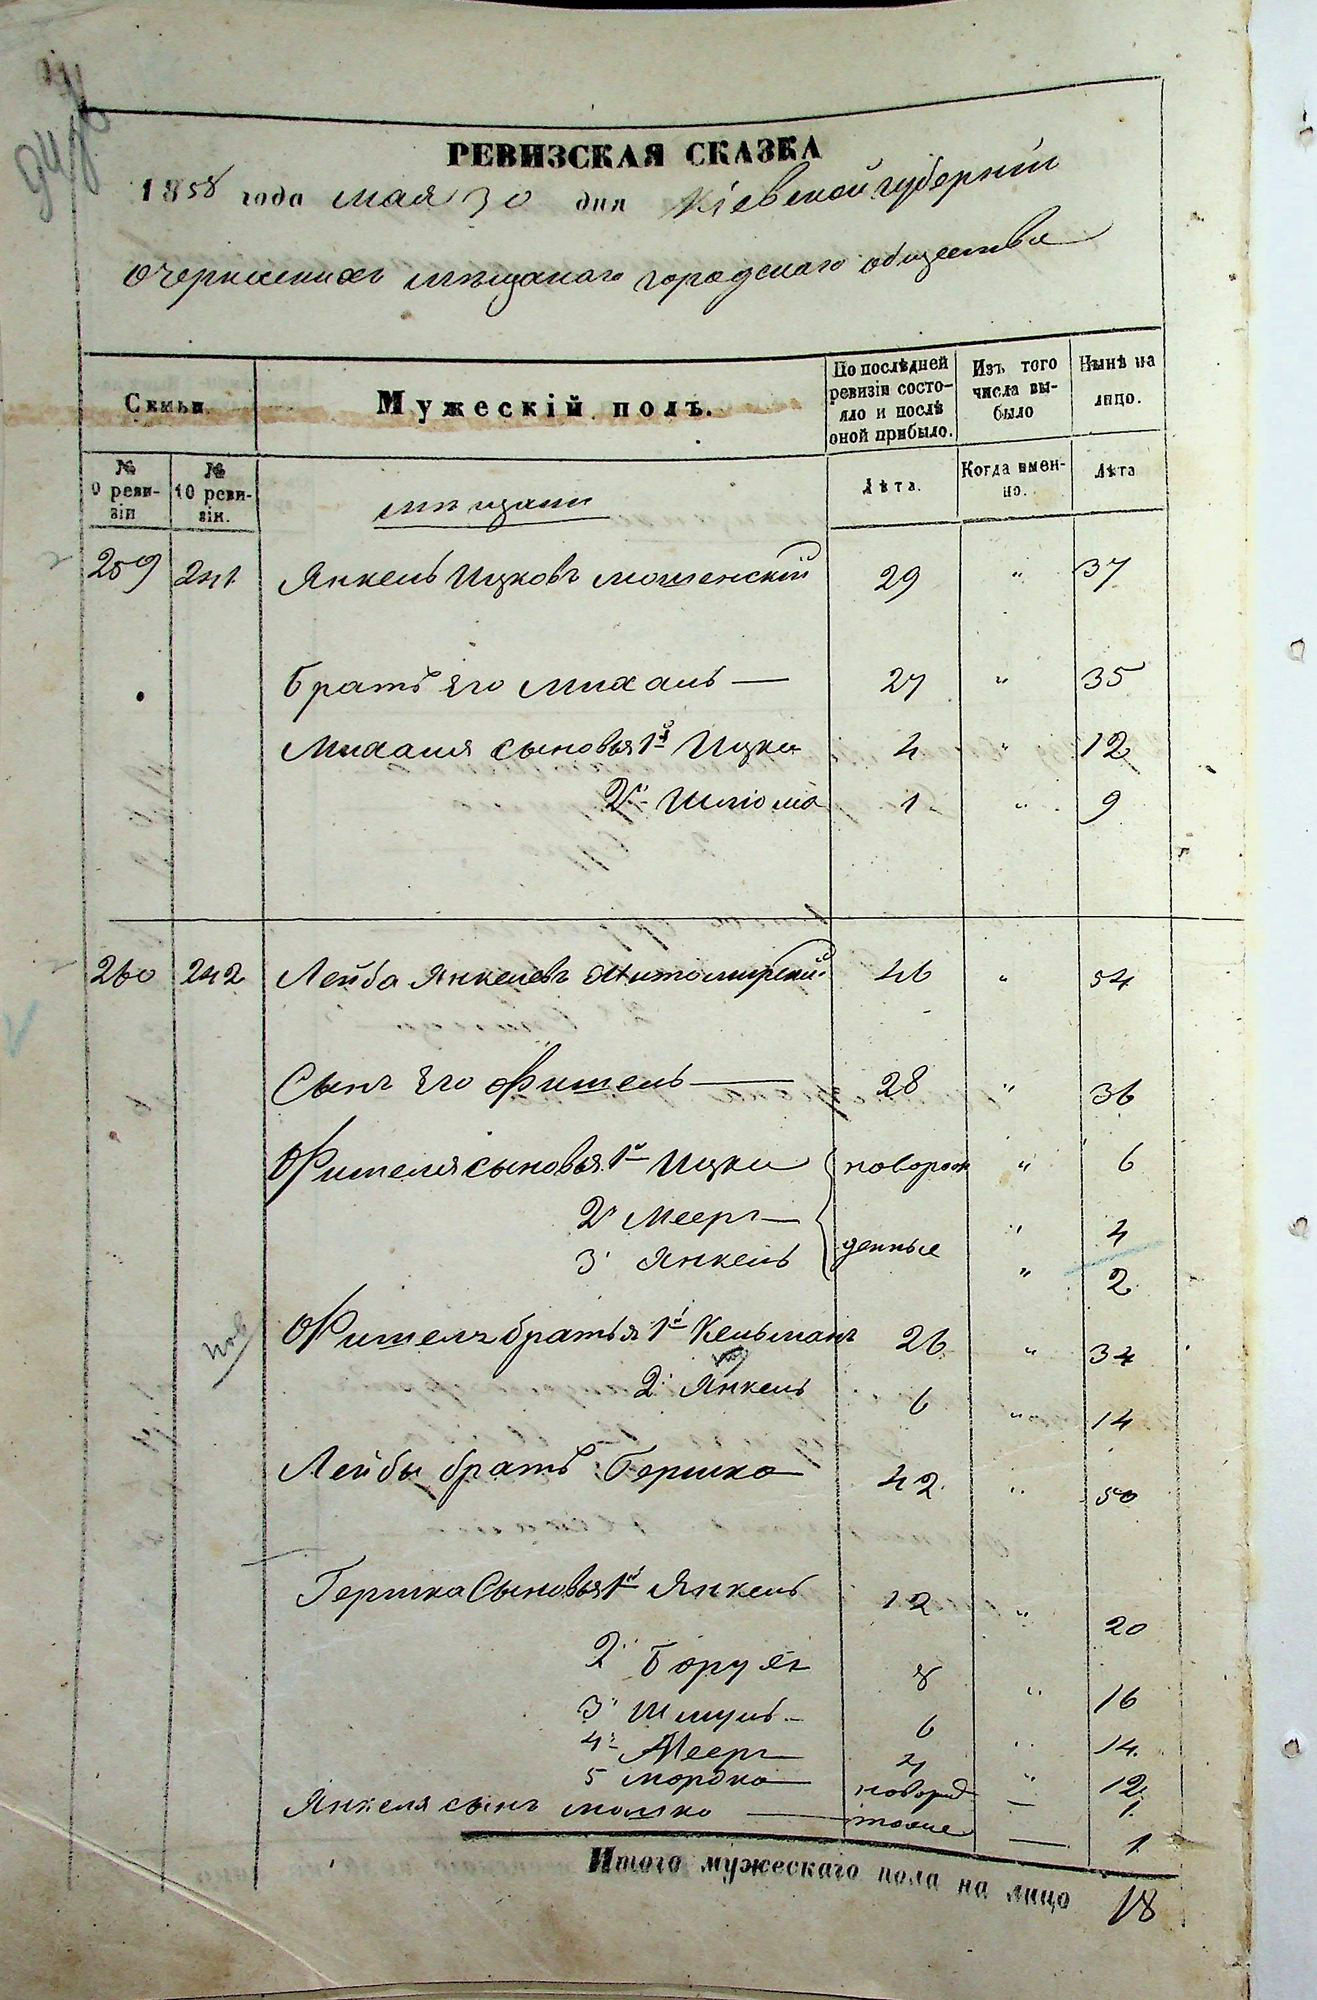 РЕВИЗСКАЯ СКАЗКА
1858 года мая 30 дня Кіевской губерніи
о мѣщанаго городскаго общества
Семьи
Мужескій полъ.
По послѣдней ревизіи состояло и послѣ оной прибыло.
Изъ того числа выбыло
Нынѣ на лицо.
№ 9 ревизіи
№ 10 ревизіи.
мѣщани
Лѣта.
Когда имен-но.
Лѣта
259 241 Янкель Ицковъ Мошенскій 29 " 37
Братъ его Михаль — 27 " 35
Михаля сыновья 1й Ицко 4 " 12
2й Шліома 1 " 9
260 242 Лейба Янкелевъ Житомирскій 46 " 54
Сынъ его Фишель — 28 " 36
Фишеля сыновья 1й Ицко новорож " 6
2й Мееръ — " 4
3й Янкель денные " 2
нов
Фишеля братья 1й Кельманъ 26 " 34
2й Янкель 6 " 14
Лейбы братъ Гершко 42 " 50
Гершка сыновья 1й Янкель 12 " 20
2й Борухъ 8 " 16
3й Шмуль 6 " 14
4й Мееръ 4 " 12
5 Мордко новорож — 1
Янкеля сынъ Мошко — тоже — 1
Итого мужескаго пола на лицо 18